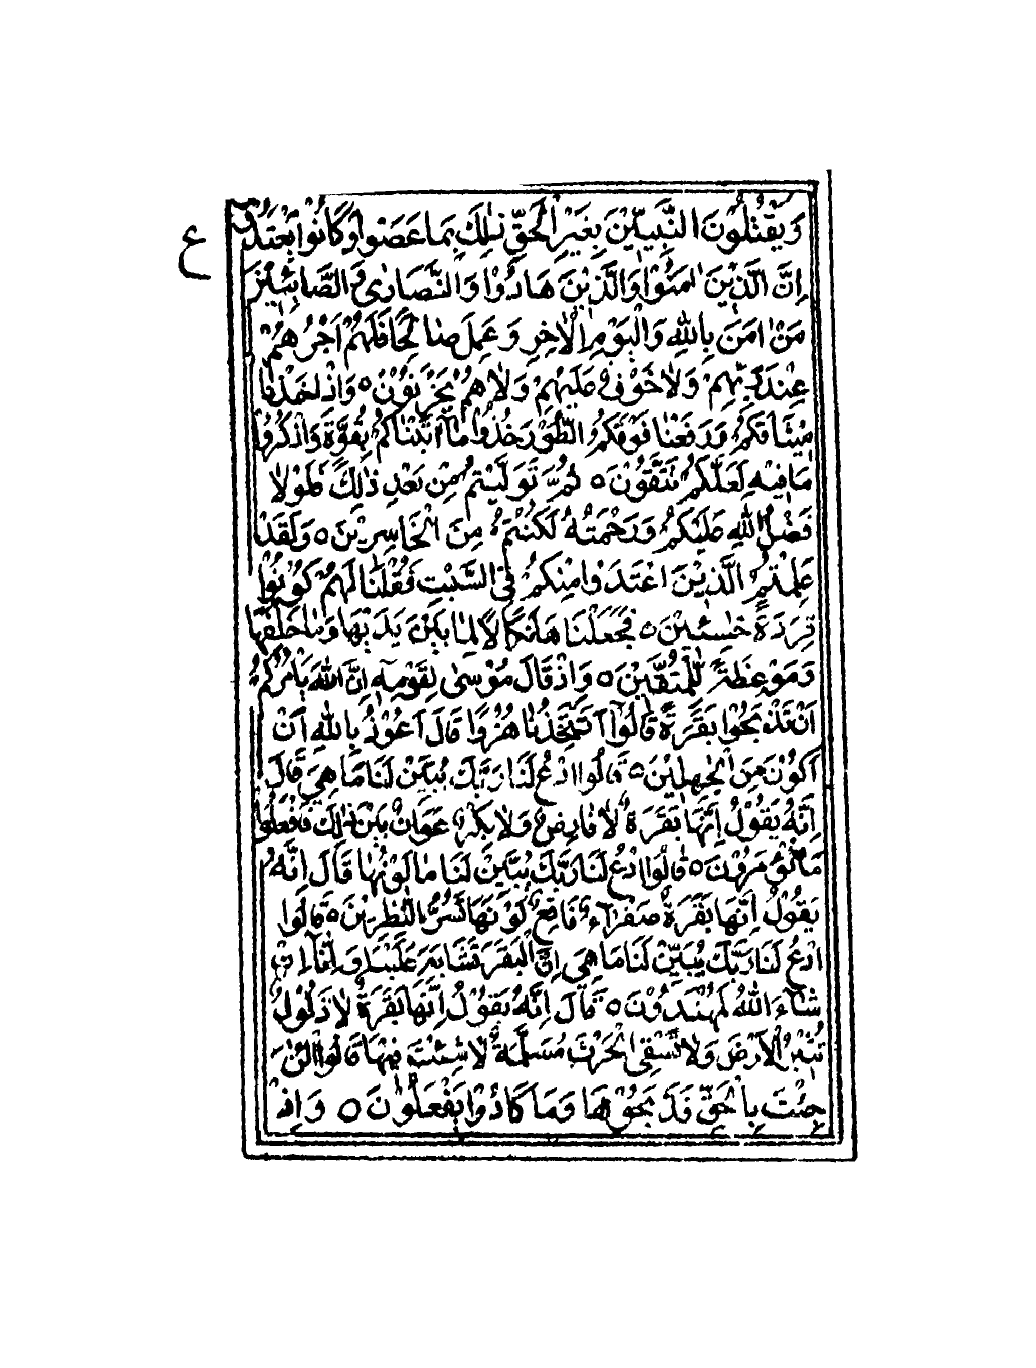 ع
وَيَقْتُلُوْنَ النَّبِيّٖنَ بِغَيْرِ الْحَقِّ ذٰلِكَ بِمَا عَصَوْا وَكَانُوْا يَعْتَدُوْنَ
اِنَّ الَّذِيْنَ اٰمَنُوْا وَالَّذِيْنَ هَادُوْا وَالنَّصَارٰى وَالصَّابِئِيْنَ
مَنْ اٰمَنَ بِاللّٰهِ وَالْيَوْمِ الْاٰخِرِ وَعَمِلَ صَالِحًا فَلَهُمْ اَجْرُهُمْ
عِنْدَ رَبِّهِمْ وَلَا خَوْفٌ عَلَيْهِمْ وَلَا هُمْ يَحْزَنُوْنَ ○ وَاِذْ اَخَذْنَا
مِيْثَاقَكُمْ وَرَفَعْنَا فَوْقَكُمُ الطُّوْرَ خُذُوْا مَآ اٰتَيْنَاكُمْ بِقُوَّةٍ وَاذْكُرُوْا
مَا فِيْهِ لَعَلَّكُمْ تَتَّقُوْنَ ○ ثُمَّ تَوَلَّيْتُمْ مِنْ بَعْدِ ذٰلِكَ فَلَوْلَا
فَضْلُ اللّٰهِ عَلَيْكُمْ وَرَحْمَتُهٗ لَكُنْتُمْ مِنَ الْخَاسِرِيْنَ ○ وَلَقَدْ
عَلِمْتُمُ الَّذِيْنَ اعْتَدَوْا مِنْكُمْ فِي السَّبْتِ فَقُلْنَا لَهُمْ كُوْنُوْا
قِرَدَةً خٰسِئِيْنَ ○ فَجَعَلْنَاهَا نَكَالًا لِمَا بَيْنَ يَدَيْهَا وَمَا خَلْفَهَا
وَمَوْعِظَةً لِلْمُتَّقِيْنَ ○ وَاِذْ قَالَ مُوْسٰى لِقَوْمِهٖ اِنَّ اللّٰهَ يَاْمُرُكُمْ
اَنْ تَذْبَحُوْا بَقَرَةً قَالُوْٓا اَتَتَّخِذُنَا هُزُوًا قَالَ اَعُوْذُ بِاللّٰهِ اَنْ
اَكُوْنَ مِنَ الْجٰهِلِيْنَ ○ قَالُوا ادْعُ لَنَا رَبَّكَ يُبَيِّنْ لَنَا مَا هِيَ قَالَ
اِنَّهٗ يَقُوْلُ اِنَّهَا بَقَرَةٌ لَا فَارِضٌ وَلَا بِكْرٌ عَوَانٌ بَيْنَ ذٰلِكَ فَافْعَلُوْا
مَا تُؤْمَرُوْنَ ○ قَالُوا ادْعُ لَنَا رَبَّكَ يُبَيِّنْ لَنَا مَا لَوْنُهَا قَالَ اِنَّهٗ
يَقُوْلُ اِنَّهَا بَقَرَةٌ صَفْرَآءُ فَاقِعٌ لَوْنُهَا تَسُرُّ النّٰظِرِيْنَ ○ قَالُوا
ادْعُ لَنَا رَبَّكَ يُبَيِّنْ لَنَا مَا هِيَ اِنَّ الْبَقَرَ تَشَابَهَ عَلَيْنَا وَاِنَّآ اِنْ
شَآءَ اللّٰهُ لَمُهْتَدُوْنَ ○ قَالَ اِنَّهٗ يَقُوْلُ اِنَّهَا بَقَرَةٌ لَا ذَلُوْلٌ
تُثِيْرُ الْاَرْضَ وَلَا تَسْقِى الْحَرْثَ مُسَلَّمَةٌ لَا شِيَةَ فِيْهَا قَالُوا الْئٰنَ
جِئْتَ بِالْحَقِّ فَذَبَحُوْهَا وَمَا كَادُوْا يَفْعَلُوْنَ ○ وَاِذْ